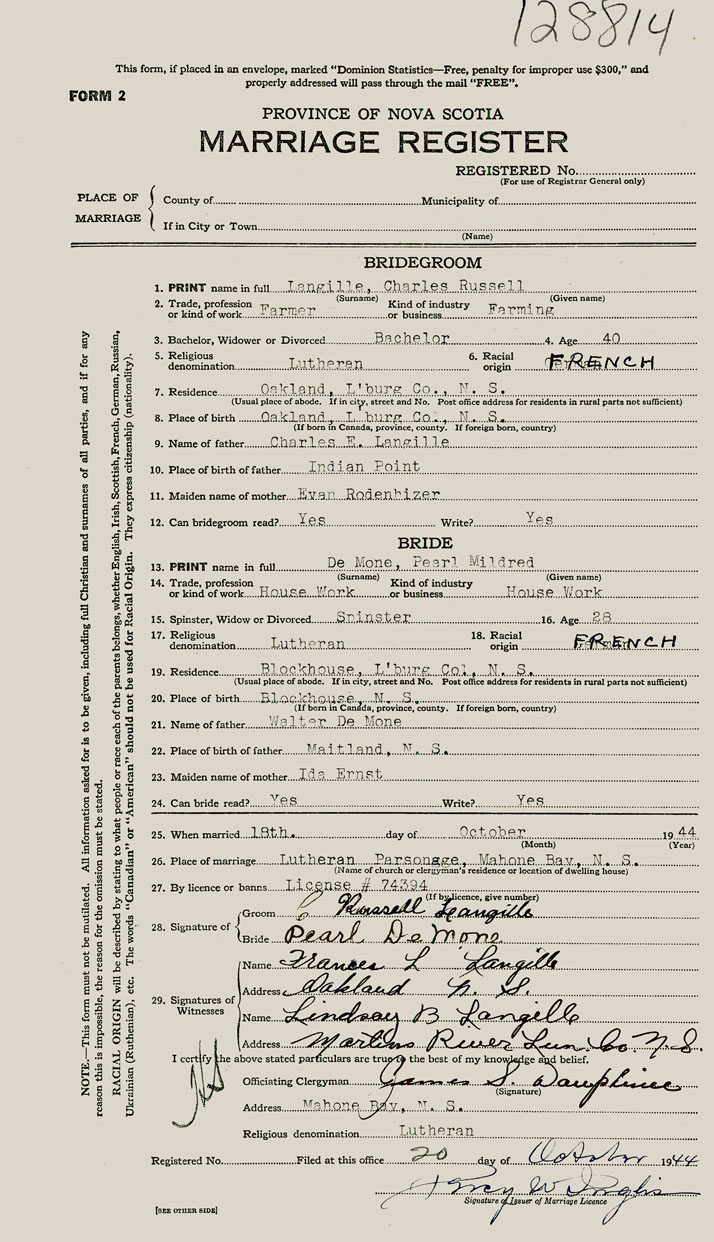 128814
This form, if placed in an envelope, marked "Dominion Statistics—Free, penalty for improper use $300," and
properly addressed will pass through the mail "FREE".
FORM 2
PROVINCE OF NOVA SCOTIA
MARRIAGE REGISTER
REGISTERED No.
(For use of Registrar General only)
PLACE OF MARRIAGE
County of Municipality of
If in City or Town
(Name)
BRIDEGROOM
1. PRINT name in full Langille, Charles Russell
(Surname) (Given name)
2. Trade, profession or kind of work Farmer Kind of industry or business Farming
3. Bachelor, Widower or Divorced Bachelor 4. Age 40
5. Religious denomination Lutheran 6. Racial origin FRENCH
7. Residence Oakland, L'burg Co., N. S.
(Usual place of abode. If in city, street and No. Post office address for residents in rural parts not sufficient)
8. Place of birth Oakland, L'burg Co., N. S.
(If born in Canada, province, county. If foreign born, country)
9. Name of father Charles E. Langille
10. Place of birth of father Indian Point
11. Maiden name of mother Evan Rodenhizer
12. Can bridegroom read? Yes Write? Yes
BRIDE
13. PRINT name in full De Mone, Pearl Mildred
(Surname) (Given name)
14. Trade, profession or kind of work House Work Kind of industry or business House Work
15. Spinster, Widow or Divorced Spinster 16. Age 28
17. Religious denomination Lutheran 18. Racial origin FRENCH
19. Residence Blockhouse, L'burg Col, N. S.
(Usual place of abode. If in city, street and No. Post office address for residents in rural parts not sufficient)
20. Place of birth Blockhouse, N. S.
(If born in Canada, province, county. If foreign born, country)
21. Name of father Walter De Mone
22. Place of birth of father Maitland, N. S.
23. Maiden name of mother Ida Ernst
24. Can bride read? Yes Write? Yes
25. When married 18th. day of October 1944
(Month) (Year)
26. Place of marriage Lutheran Parsonage, Mahone Bay, N. S.
(Name of church or clergyman's residence or location of dwelling house)
27. By licence or banns License # 74394
(If by licence, give number)
28. Signature of
Groom C Russell Langille
Bride Pearl De Mone
29. Signatures of Witnesses
Name Frances L Langille
Address Oakland N. S.
Name Lindsay B Langille
Address Martins River Lun. Co. N.S.
I certify the above stated particulars are true to the best of my knowledge and belief.
Officiating Clergyman James S. Dauphinee
(Signature)
Address Mahone Bay, N. S.
Religious denomination Lutheran
Registered No. Filed at this office 20 day of October 1944
Percy W Inglis
Signature of Issuer of Marriage Licence
[SEE OTHER SIDE]
NOTE.—This form must not be mutilated. All information asked for is to be given, including full Christian and surnames of all parties, and if for any
reason this is impossible, the reason for the omission must be stated.
RACIAL ORIGIN will be described by stating to what people or race each of the parents belongs, whether English, Irish, Scottish, French, German, Russian,
Ukrainian (Ruthenian), etc. The words "Canadian" or "American" should not be used for Racial Origin. They express citizenship (nationality).